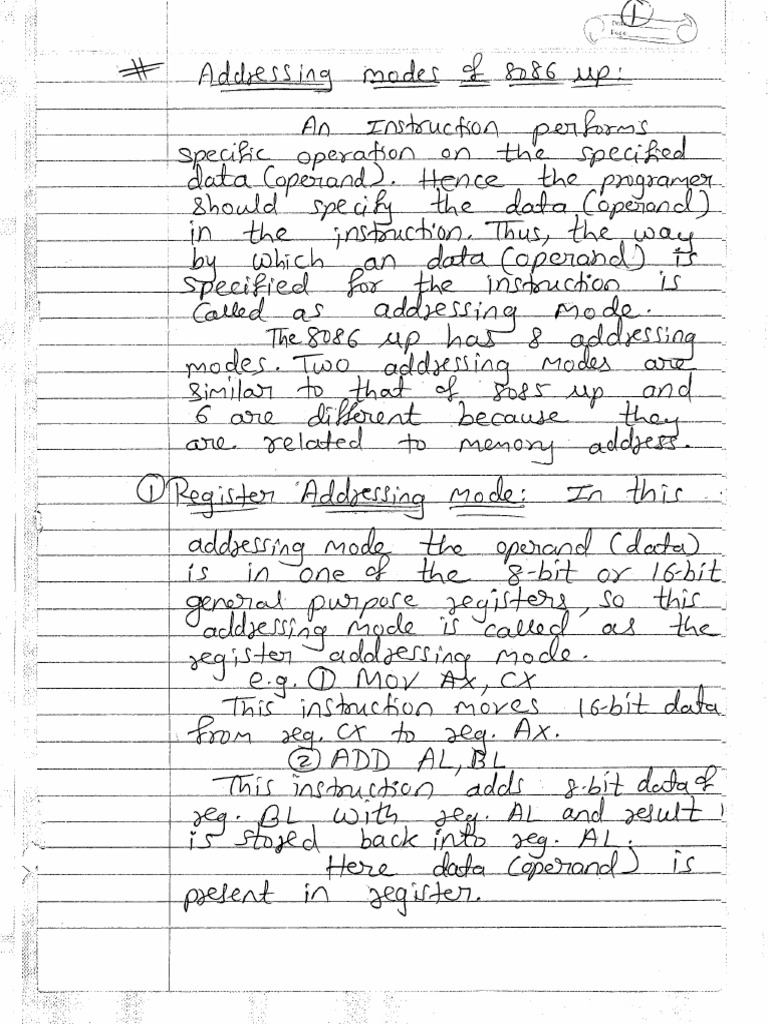 1
# Addressing modes of 8086 up:
An Instruction performs
specific operation on the specified
data (operand). Hence the programer
should specify the data (operand)
in the instruction. Thus, the way
by which an data (operand) is
specified for the instruction is
called as addressing mode.
The 8086 up has 8 addressing
modes. Two addressing modes are
similar to that of 8085 up and
6 are different because they
are related to memory address.
① Register Addressing mode: In this
addressing mode the operand (data)
is in one of the 8-bit or 16-bit
general purpose registers, so this
addressing mode is called as the
register addressing mode.
e.g. ① MOV AX, CX
This instruction moves 16-bit data
from reg. CX to reg. AX.
② ADD AL, BL
This instruction adds 8-bit data of
reg. BL with reg. AL and result
is stored back into reg. AL.
Here data (operand) is
present in register.